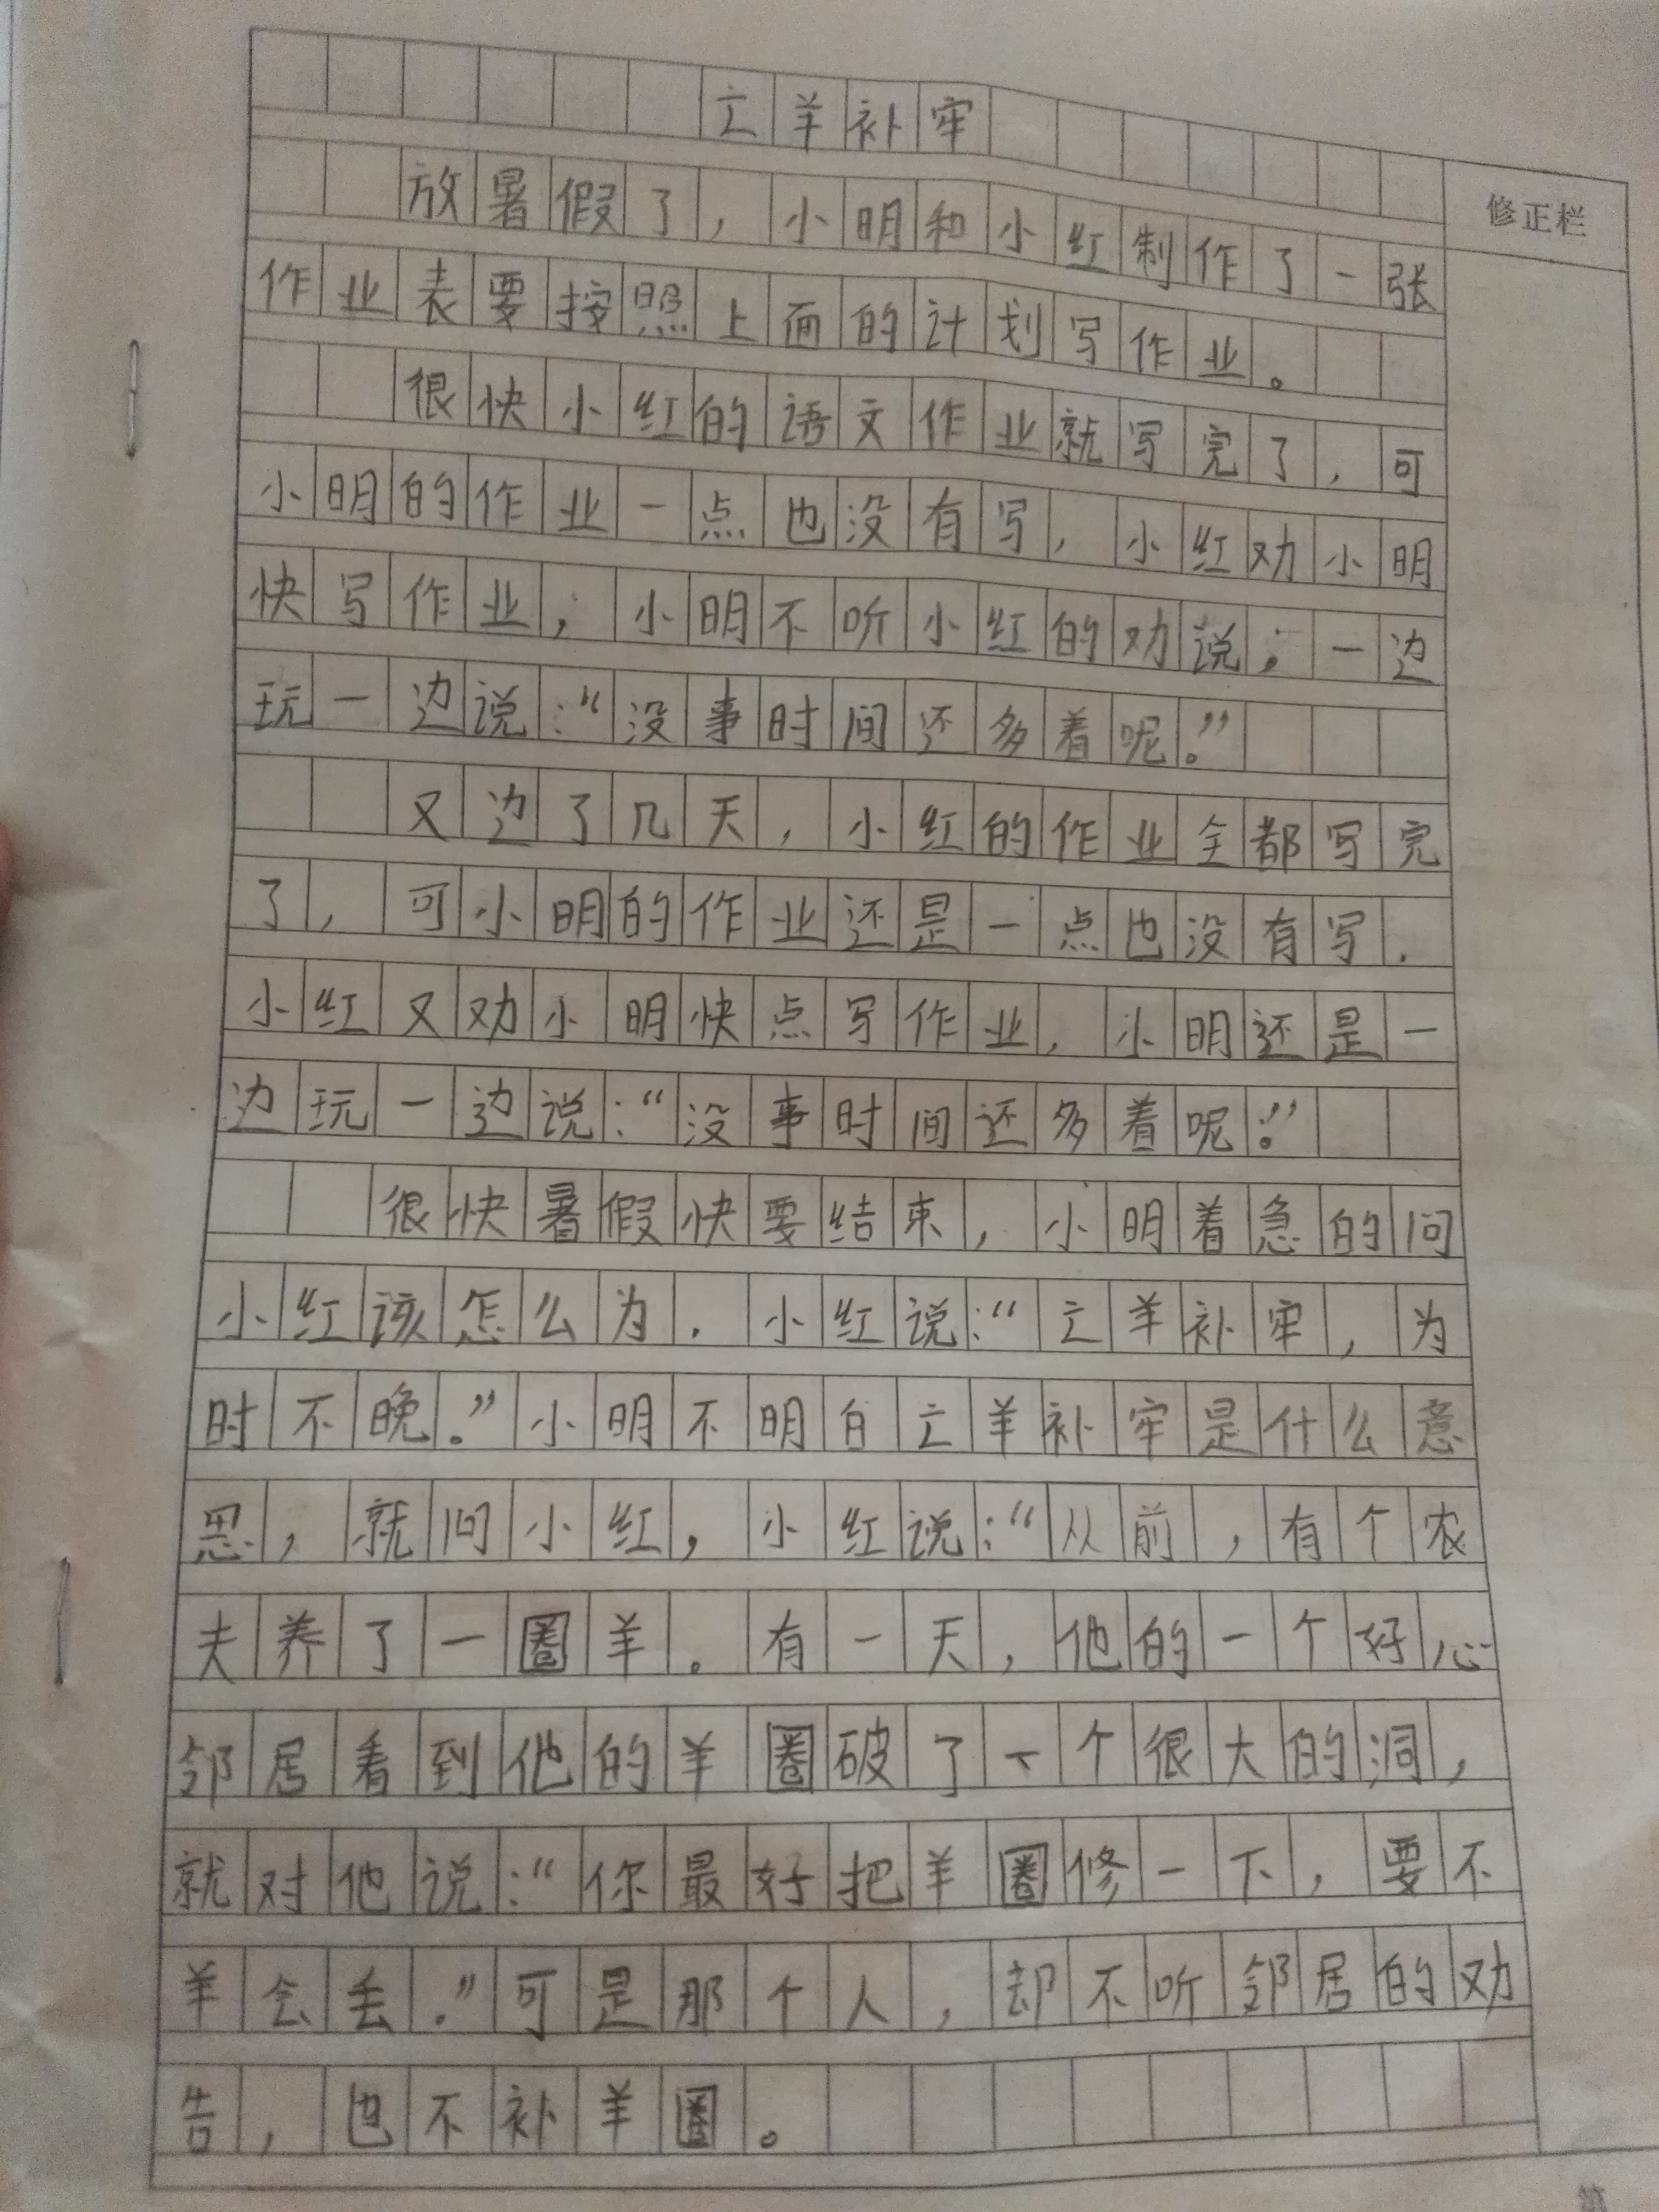 亡羊补牢
修正栏
放暑假了，小明和小红制作了一张
作业表要按照上面的计划写作业。
很快小红的语文作业就写完了，可
小明的作业一点也没有写，小红劝小明
快写作业，小明不听小红的劝说，一边
玩一边说：“没事时间还多着呢。”
又边了几天，小红的作业全都写完
了，可小明的作业还是一点也没有写.
小红又劝小明快点写作业，小明还是一
边玩一边说：“没事时间还多着呢。”
很快暑假快要结束，小明着急的问
小红该怎么为.小红说：“亡羊补牢，为
时不晚。”小明不明白亡羊补牢是什么意
思，就问小红，小红说：“从前，有个农
夫养了一圈羊。有一天，他的一个好心
邻居看到他的羊圈破了一个很大的洞，
就对他说：“你最好把羊圈修一下，要不
羊会丢.”可是那个人，却不听邻居的劝
告，也不补羊圈。
第